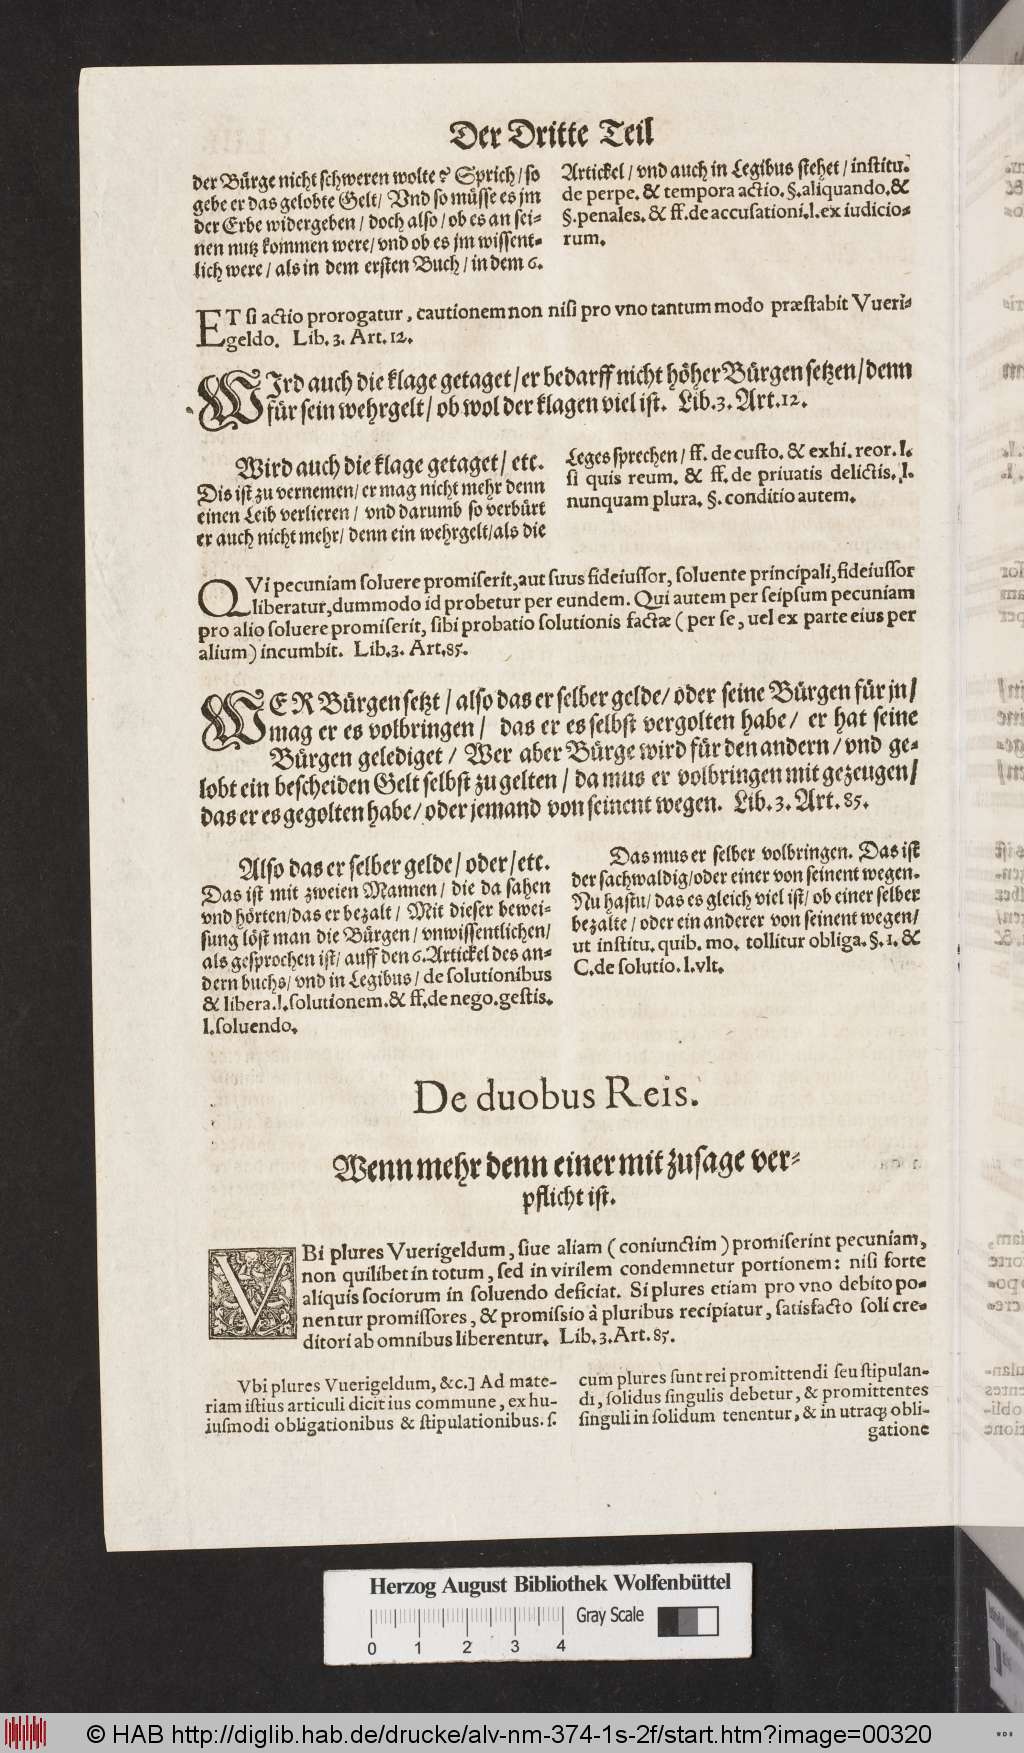 Der Dritte Teil
der Bürge nicht schweren wolte? Sprich/ so
gebe er das gelobte Gelt/ Vnd so müsse es jm
der Erbe widergeben/ doch also/ ob es an sei-
nen nutz kommen were/ vnd ob es jm wissent-
lich were/ als in dem ersten Buch/ in dem 6.
Artickel/ vnd auch in Legibus stehet/ institu.
de perpe. & tempora actio. §. aliquando. &
§. penales. & ff. de accusationi. l. ex iudicio-
rum.
ET si actio prorogatur, cautionem non nisi pro vno tantum modo præstabit Vueri-
geldo. Lib. 3. Art. 12.
WIrd auch die klage getaget/ er bedarff nicht höher Bürgen setzen/ denn
für sein wehrgelt/ ob wol der klagen viel ist. Lib. 3. Art. 12.
Wird auch die klage getaget/ etc.
Dis ist zu vernemen/ er mag nicht mehr denn
einen Leib verlieren/ vnd darumb so verbürt
er auch nicht mehr/ denn ein wehrgelt/ als die
Leges sprechen/ ff. de custo. & exhi. reor. l.
si quis reum. & ff. de priuatis delictis. l.
nunquam plura. §. conditio autem.
QVi pecuniam soluere promiserit, aut suus fideiussor, soluente principali, fideiussor
liberatur, dummodo id probetur per eundem. Qui autem per seipsum pecuniam
pro alio soluere promiserit, sibi probatio solutionis factæ (per se, uel ex parte eius per
alium) incumbit. Lib. 3. Art. 85.
WER Bürgen setzt/ also das er selber gelde/ oder seine Bürgen für jn/
mag er es volbringen/ das er es selbst vergolten habe/ er hat seine
Bürgen gelediget/ Wer aber Bürge wird für den andern/ vnd ge-
lobt ein bescheiden Gelt selbst zu gelten/ da mus er volbringen mit gezeugen/
das er es gegolten habe/ oder jemand von seinent wegen. Lib. 3. Art. 85.
Also das er selber gelde/ oder/ etc.
Das ist mit zweien Mannen/ die da sahen
vnd hörten/ das er bezalt/ Mit dieser bewei-
sung löst man die Bürgen/ vnwissentlichen/
als gesprochen ist/ auff den 6. Artickel des an-
dern buchs/ vnd in Legibus/ de solutionibus
& libera. l. solutionem. & ff. de nego. gestis.
l. soluendo.
Das mus er selber volbringen. Das ist
der sachwaldig/ oder einer von seinent wegen.
Nu hastu/ das es gleich viel ist/ ob einer selber
bezalte/ oder ein anderer von seinent wegen/
ut institu. quib. mo. tollitur obliga. §. 1. &
C. de solutio. l. vlt.
De duobus Reis.
Wenn mehr denn einer mit zusage ver-
pflicht ist.
VBi plures Vuerigeldum, siue aliam (coniunctim) promiserint pecuniam,
non quilibet in totum, sed in virilem condemnetur portionem: nisi forte
aliquis sociorum in soluendo deficiat. Si plures etiam pro vno debito po-
nentur promissores, & promissio à pluribus recipiatur, satisfacto soli cre-
ditori ab omnibus liberentur. Lib. 3. Art. 85.
Vbi plures Vuerigeldum, &c.] Ad mate-
riam istius articuli dicit ius commune, ex hu-
iusmodi obligationibus & stipulationibus. s.
cum plures sunt rei promittendi seu stipulan-
di, solidus singulis debetur, & promittentes
singuli in solidum tenentur, & in utraq; obli-
gatione
Herzog August Bibliothek Wolfenbüttel
Gray Scale
0 1 2 3 4
© HAB http://diglib.hab.de/drucke/alv-nm-374-1s-2f/start.htm?image=00320